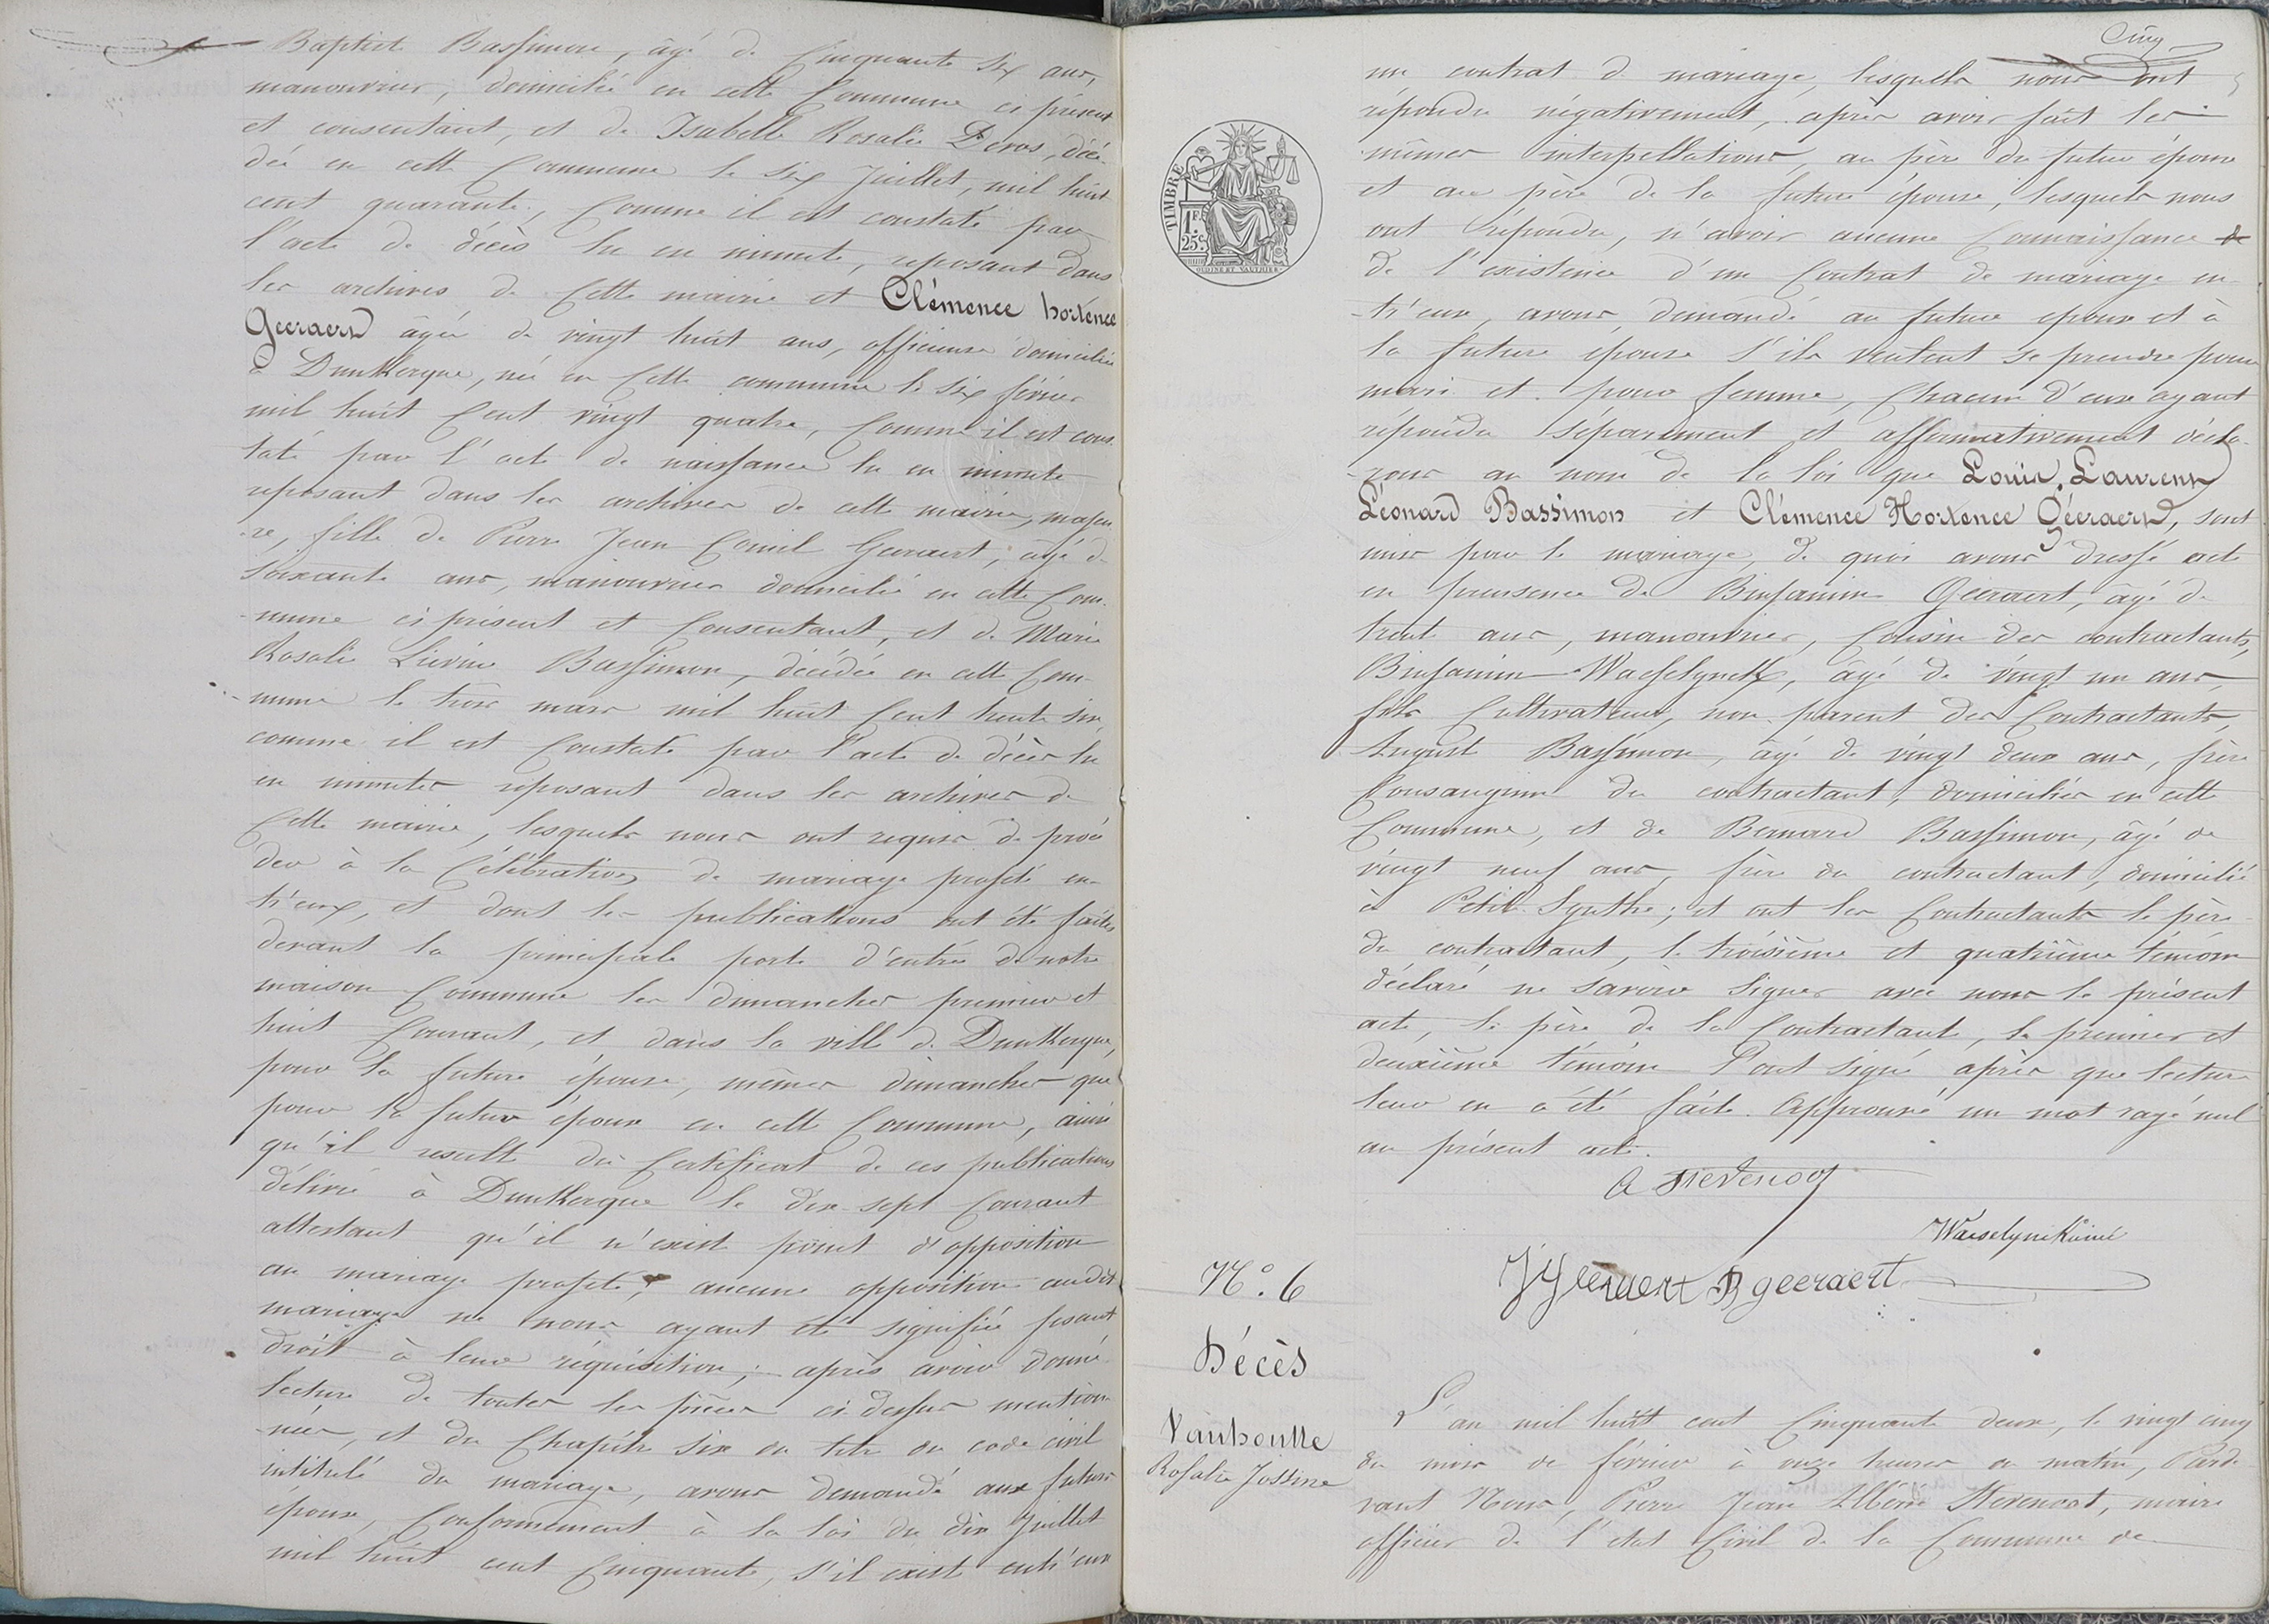 Baptist Bassimon, âgé de Cinquante Six ans,
manouvrier, domicilié en cette Commune ci présent
et consentant, et de Isabelle Rosalie Devos, décé-
dée en cette Commune le Six Juillet, mil huit
cent quarante, Comme il est constaté par
l'acte de décès lu en minute, reposant dans
les archives de Cette mairie et Clémence hortence
Geeraert âgée de vingt huit ans, domiciliée
à Dunkerque, née en Cette commune le Six février
mil huit Cent vingt quatre, Comme il est cons-
taté par l'acte de naissance lu en minute
reposant dans les archives de cette mairie, majeu-
re, fille de Pierre Jean Cornil Geeraert, âgé de
Soixante ans, manouvrier domicilié en cette Com-
mune ci présent et Consentant, et de Marie
Rosalie Livine Bassimon, décédée en cette Com-
mune le trois mars mil huit Cent trente six,
comme il est Constaté par l'acte de décès lu
en minutes reposant dans les archives de
Cette mairie, lesquels nous ont requis de procé
der à la Célébration de mariage projeté en-
tr'eux, et dont les publications ont été faites
devant la principale porte d'entrée de notre
maison Commune les dimanches premier et
huit Courant, et dans la ville de Dunkerque,
pour la future épouse, mêmes dimanches que
pour le futur époux en cette Commune, ainsi
qu'il resulte du Certificat de ces publications
délivré à Dunkerque le dix-sept Courant
attestant qu'il n'existe point d'opposition
au mariage projeté, aucune opposition audit
mariage ne nous ayant été signifiée fesant
droit à leur réquisition; après avoir donné
lecture de toutes les pièces ci dessus mention-
nées, et du Chapitre Six du titre du code civil
intitulé du mariage, avons demandé aux futurs
époux, Conformément à la loi du dix Juillet
mil huit cent Cinquante, s'il existe entr'eux
Cinq
un contrat de mariage, lesquels nous ont
répondu négativement, après avoir fait les
mêmes interpellations au père du futur époux
et au père de la future épouse, lesquels nous
ont répondu, n'avoir aucune Connaissance de
de l'existence d'un Contrat de mariage en-
tr'eux, avons demandé au futur epoux et à
la future épouse s'ils veulent se prendre pour
mari et pour femme, Chacun d'eux ayant
répondu Séparément et affirmativement décla-
rons au nom de la loi que Louis Laurent
Léonard Bassimon et Clémence Hortence Géeraert, sont
unis par le mariage, de quoi avons dressé acte
en presence de Binjamin Geeraert, âgé de
trente ans, manouvrier, Cousin des contractants,
Binjamin Waeselynck, âgé de vingt un ans,
fils Cultivateur, non parent des Contractants,
August Bassimon, âgé de vingt deux ans, frère
Consanguin du contractant, domiciliés en cette
Commune, et de Bernard Bassimon, âgé de
vingt neuf ans, frère du contractant, domicilié
à Petite Synthe; et ont les Contractants le père
du contractant, le troisième et quatrième témoin
déclaré ne savoir signer avec nous le présent
acte, le père de la Contractante, le premier et
deuxième témoin l'ont signé après que lecture
leur en a été faite. Approuvé un mot rayé nul
au présent acte.
TIMBRE
1F.
25c.
OUDINE ET VAUTHIER
A Stevenoot
Waeselynck
Geeraert B geeraert
N°. 6
Décès
Vanhoutte
Rosalie Jossine
L'an mil huit cent Cinquante deux, le vingt cinq
du mois de février à onze heures du matin, Parde
vant Nous, Pierre Jean Albéric Stevenoot, maire
officier de l'etat Civil de la Commune de